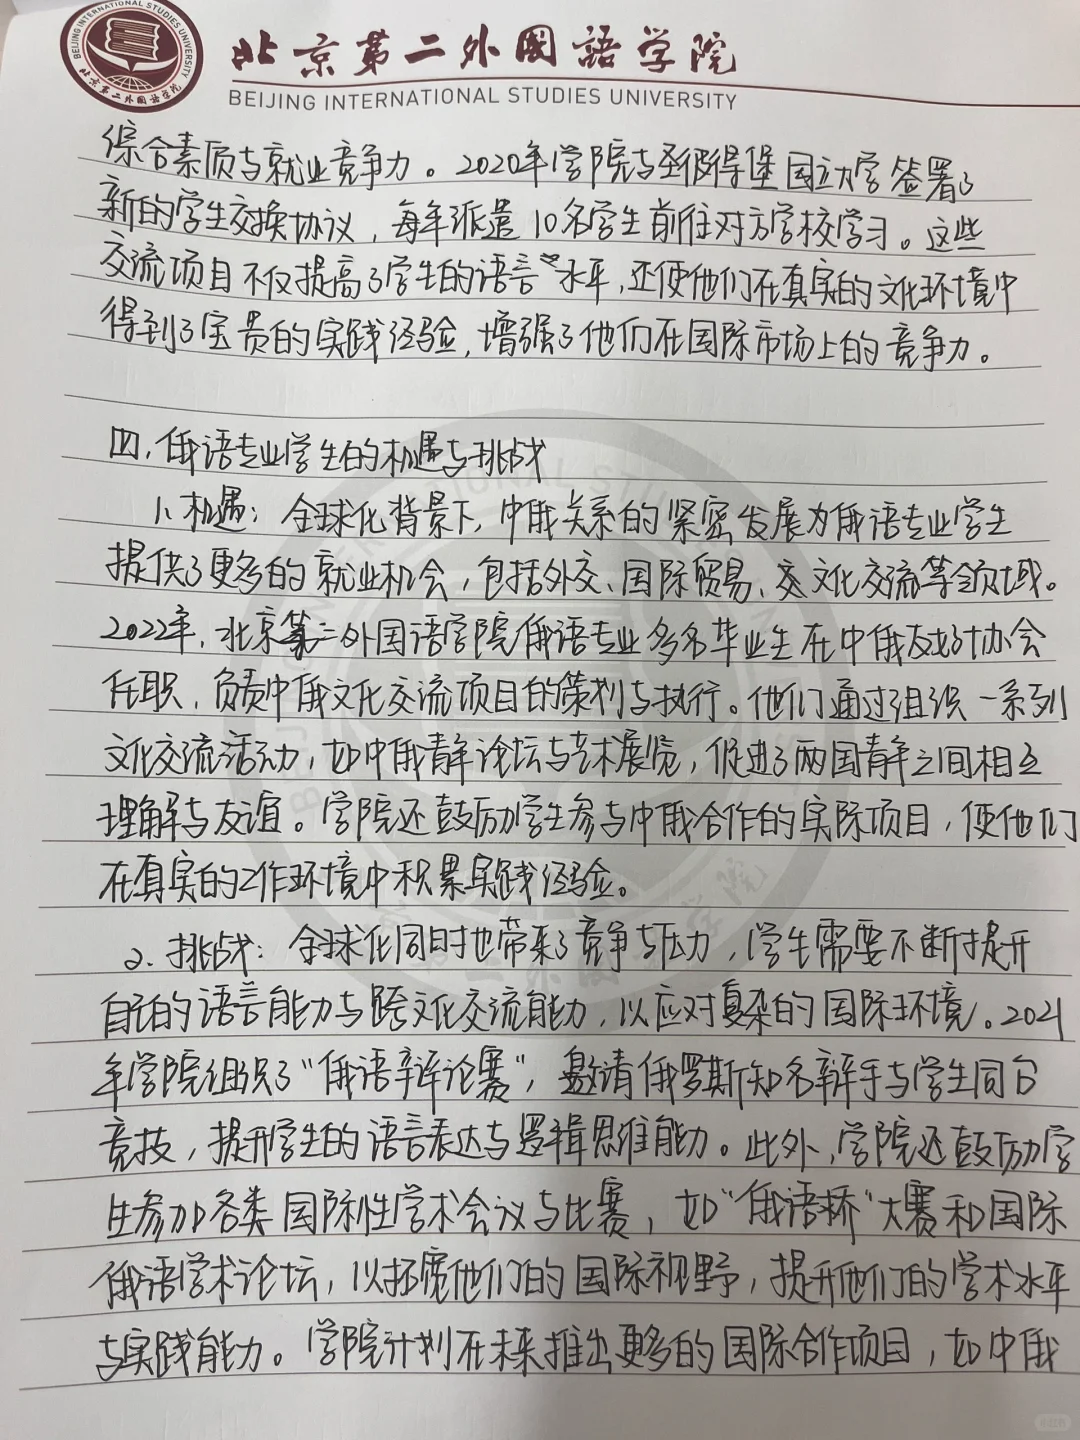 BEIJING INTERNATIONAL STUDIES UNIVERSITY
北京第二外国语学院
北京第二外國語学院
BEIJING INTERNATIONAL STUDIES UNIVERSITY
综合素质与就业竞争力。2020年学院与圣彼得堡国立大学签署了
新的学生交换协议，每年派遣10名学生前往对方学校学习。这些
交流项目不仅提高了学生的语言水平，还使他们在真实的文化环境中
得到了宝贵的实践经验，增强了他们在国际市场上的竞争力。
四、俄语专业学生的机遇与挑战
1、机遇：全球化背景下，中俄关系的紧密发展为俄语专业学生
提供了更多的就业机会，包括外交、国际贸易、文化交流等领域。
2022年，北京第二外国语学院俄语专业多名毕业生在中俄友好协会
任职，负责中俄文化交流项目的策划与执行。他们通过组织一系列
文化交流活动，如中俄青年论坛与艺术展览，促进了两国青年之间相互
理解与友谊。学院还鼓励学生参与中俄合作的实际项目，使他们
在真实的工作环境中积累实践经验。
2、挑战：全球化同时也带来了竞争与压力，学生需要不断提升
自己的语言能力与跨文化交流能力，以应对复杂的国际环境。2021
年学院组织了“俄语辩论赛”，邀请俄罗斯知名辩手与学生同台
竞技，提升学生的语言表达与逻辑思维能力。此外，学院还鼓励学
生参加各类国际性学术会议与比赛，如“俄语桥”大赛和国际
俄语学术论坛，以拓宽他们的国际视野，提升他们的学术水平
与实践能力。学院计划在未来推出更多的国际合作项目，如中俄